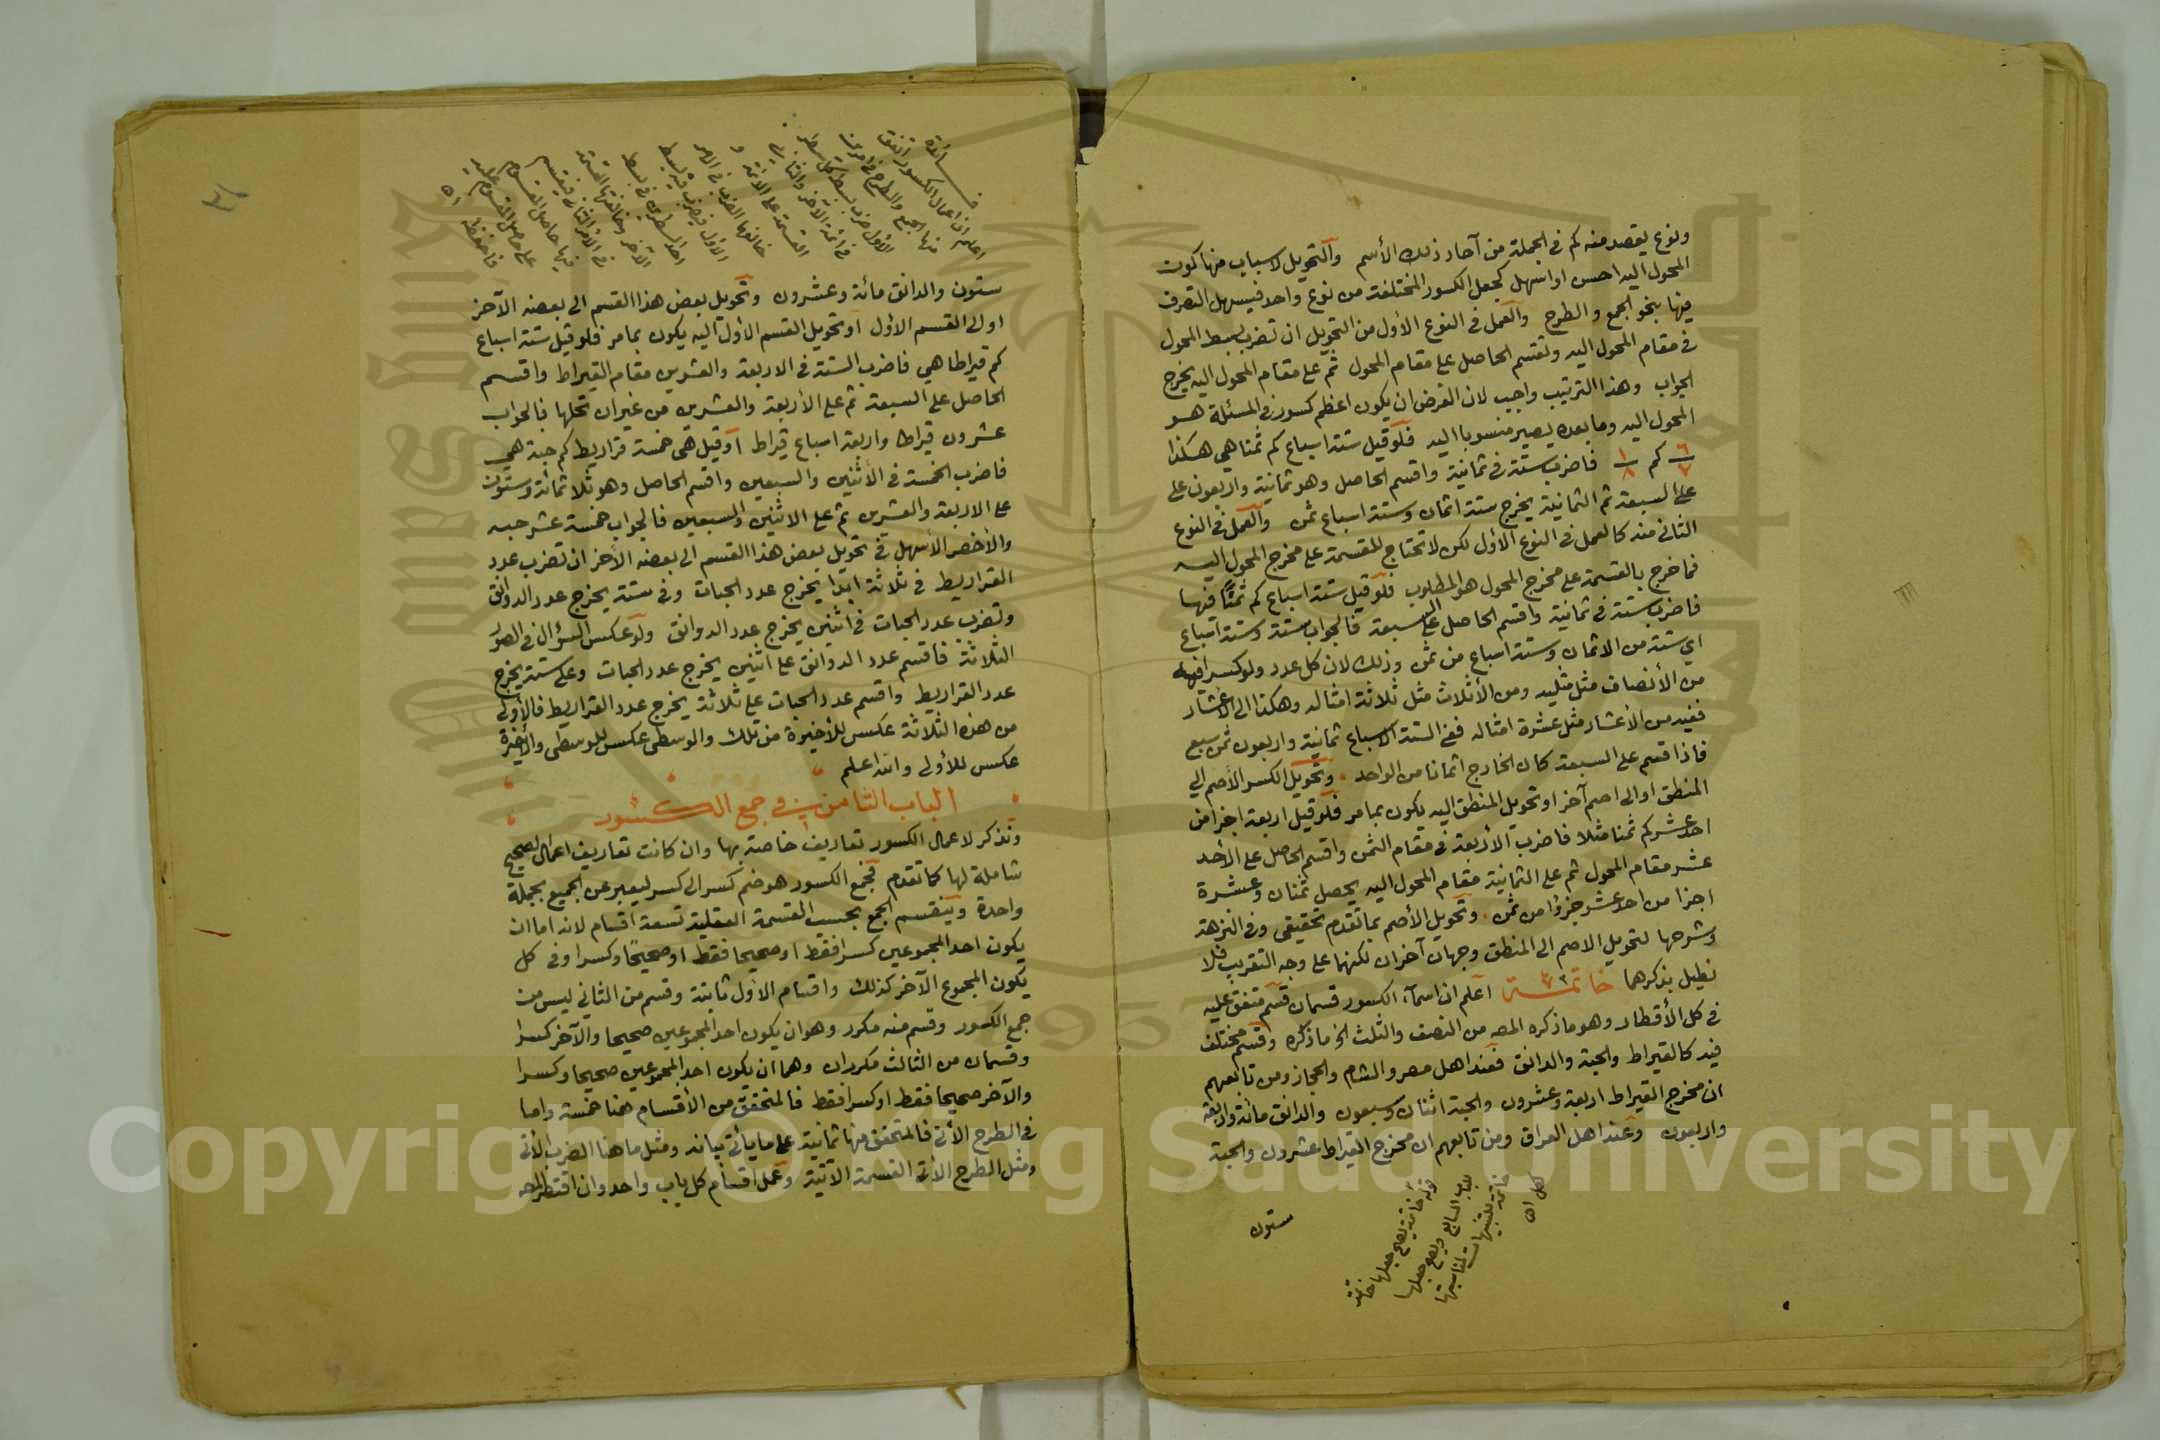 ونوع يقصد منه كم في الجملة من آحاد ذلك الأسم والتحويل لاسباب منها كون
المحول اليه احسن او اسهل كجعل الكسور المختلفة من نوع واحد فيسهل التصرف
فيها بنحو الجمع والطرح والعمل في النوع الأول من التحويل ان تضرب بسط المحول
في مقام المحول اليه وتقسم الحاصل على مقام المحول ثم على مقام المحول اليه يخرج
الجواب وهذا الترتيب واجب لان الغرض ان يكون اعظم كسور في المسئلة هو
المحول اليه وما بعده يصير منسوبا اليه فلو قيل ستة اسباع كم ثمنا هي هكذا
٦/٧ كم ١/٨ فاضرب ستة في ثمانية واقسم الحاصل وهو ثمانية واربعون على
على السبعة ثم الثمانية يخرج ستة اثمان وستة اسباع ثمن والعمل في النوع
الثاني منه كالعمل في النوع الأول لكن لا تحتاج للقسمة على مخرج المحول اليه
فما خرج بالقسمة على مخرج المحول هو المطلوب فلو قيل ستة اسباع كم ثمنًا فيها
فاضرب ستة في ثمانية واقسم الحاصل على السبعة فالجواب ستة وستة اسباع
اي ستة من الاثمان وستة اسباع من ثمن وذلك لان كل عدد ولو كسرا فيه
من الأنصاف مثل مثليه ومن الأثلاث مثل ثلاثة امثاله وهكذا الى الاعشار
ففيه من الأعشار مثل عشرة امثاله ففي الستة الاسباع ثمانية واربعون ثمن سبع
فاذا قسم على السبعة كان الخارج اثمانا من الواحد وتحويل الكسر الأصم الي
المنطق او الى اصم آخر او تحويل المنطق اليه يكون بما مر فلو قيل اربعة اجزا من
احد عشر كم ثمنا مثلا فاضرب الأربعة في مقام الثمن واقسم الحاصل على الأحد
عشر مقام المحول ثم على الثمانية مقام المحول اليه يحصل ثمنان وعشرة
اجزا من احد عشر جزؤا من ثمن وتحويل الأصم بما تقدم تحقيقي وفي النزهة
وشرحها لتحويل الاصم الى المنطق وجهان آخران لكنهما على وجه التقريب فلا
نطيل بذكرهما خاتمة اعلم ان اسمآء الكسور قسمان قسم متفق عليه
في كل الأقطار وهو ما ذكره المص من النصف والثلث الخ ما ذكره وقسم مختلف
فيه كالقيراط والحبة والدانق فعند اهل مصر والشام والحجاز ومن تابعهم
ان مخرج القيراط اربعة وعشرون والحبة اثنان وسبعون والدانق مائة واربعة
واربعون وعند اهل العراق ومن تابعهم ان مخرج القيراط عشرون والحبة
ستون
قوله خاتمة يصح جعلها خاتمة
للباب السابع ويصح جعلها
خاتمة للتنبيهات لمناسبتها
فائدة
اعلم ان اعمال الكسور اتفق
منها الجمع والطرح في امرين
الأول ضرب بسط كل سطر
في ائمة الآخر والثاني
القسمة على الائمة و
خالفهما الضرب في الامر
الأول فيضرب فيه بسط
احد السطرين في بسط
الآخر وخالفتها القسمة
في الأمر الثاني فيقسم
فيها حاصل المقسوم
على حاصل المقسوم عليه
فاحفظه اه
ستون والدانق مائة وعشرون وتحويل بعض هذا القسم الى بعضه الآخر
او الى القسم الأول او تحويل القسم الأول اليه يكون بما مر فلو قيل ستة اسباع
كم قيراطا هي فاضرب الستة في الاربعة والعشرين مقام القيراط واقسم
الحاصل على السبعة ثم على الأربعة والعشرين من غير ان تحلها فالجواب
عشرون قيراطا واربعة اسباع قيراط او قيل هي خمسة قراريط كم حبة هي
فاضرب الخمسة في الأثنين والسبعين واقسم الحاصل وهو ثلاثمائة وستون
على الاربعة والعشرين ثم على الاثنين والسبعين فالجواب خمسة عشر حبة
والأخصر الأسهل في تحويل بعض هذا القسم الى بعضه الأخر ان تضرب عدد
القراريط في ثلاثة ابدا يخرج عدد الحبات وفي ستة يخرج عدد الدوانق
وتضرب عدد الحبات في اثنين يخرج عدد الدوانق ولو عكس السؤال في الصور
الثلاثة فاقسم عدد الدوانق على اثنين يخرج عدد الحبات وعلى ستة يخرج
عدد القراريط واقسم عدد الحبات على ثلاثة يخرج عدد القراريط فالأولى
من هذه الثلاثة عكس للأخيرة من تلك والوسطى عكس للوسطى والأخيرة
عكس للأولى والله اعلم
الباب الثامن في جمع الكسور
ونذكر لاعمال الكسور تعاريف خاصة بها وان كانت تعاريف اعمال الصحيح
شاملة لها كما تقدم فجمع الكسور هو ضم كسر الى كسر ليعبر عن الجميع بجملة
واحدة وينقسم الجمع بحسب القسمة العقلية تسعة اقسام لانه اما ان
يكون احد المجموعين كسرا فقط او صحيحا فقط او صحيحًا وكسرا وفي كل
يكون المجموع الآخر كذلك واقسام الاول ثابتة وقسم من الثاني ليس من
جمع الكسور وقسم منه مكرر وهو ان يكون احد المجموعين صحيحا والآخر كسرا
وقسمان من الثالث مكرران وهما ان يكون احد المجموعين صحيحا وكسرا
والآخر صحيحا فقط او كسرا فقط فالمتحقق من الأقسام هنا خمسة واما
في الطرح الأتي فالمتحقق منها ثمانية على ما يأتي بيانه ومثل ما هنا الضرب الأتي
ومثل الطرح الأتي القسمة الآتية وعمل اقسام كل باب واحد وان اقتصر المص
Copyright © King Saud University
1957